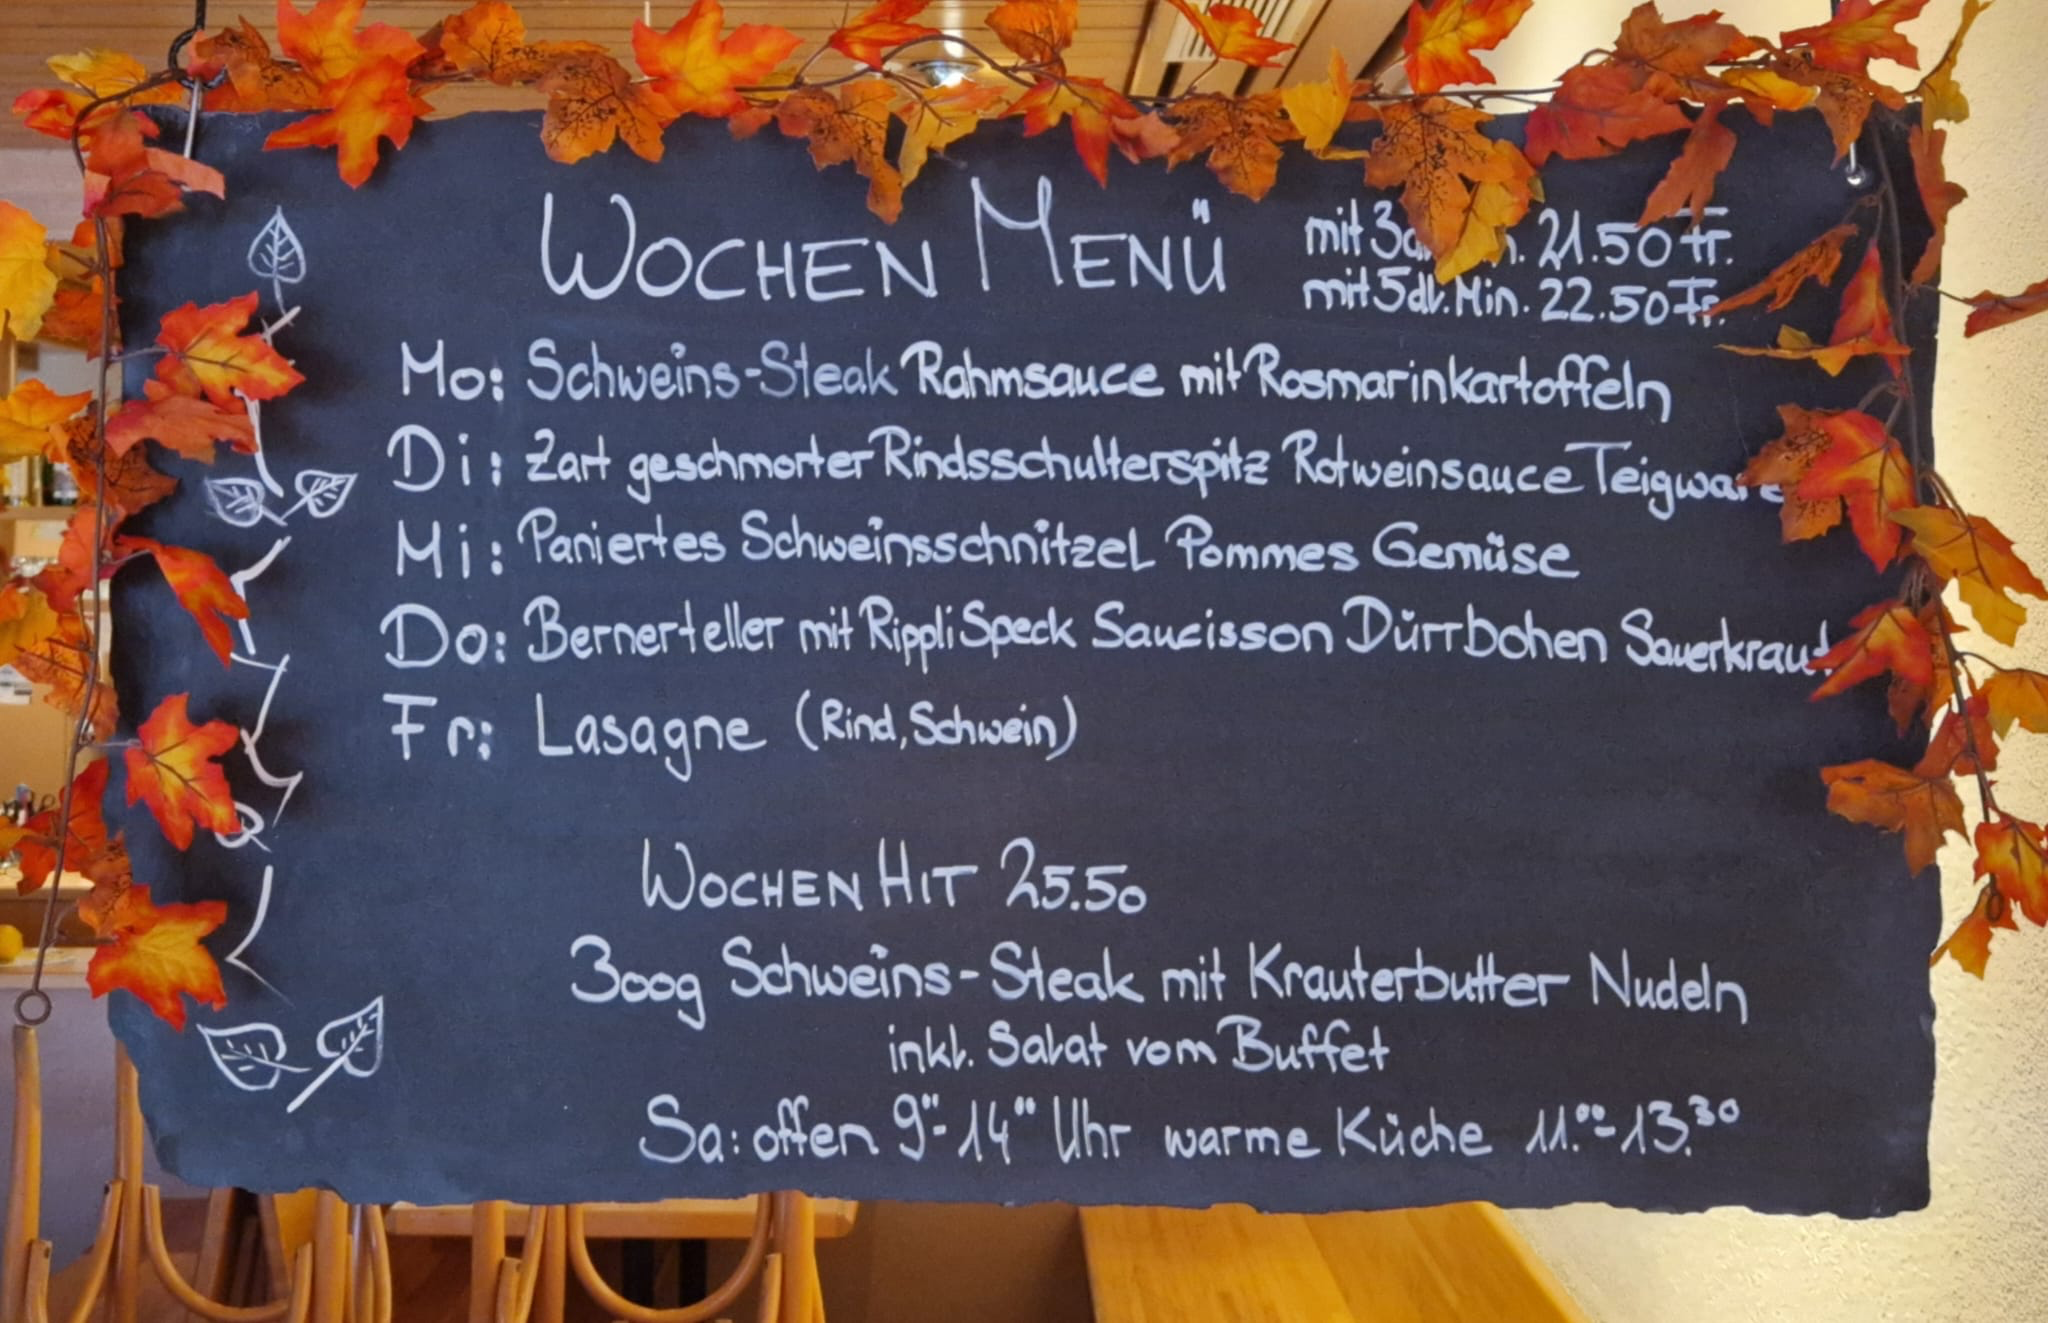 WOCHEN MENÜ
mit 21.50 Fr.
mit 5dl. Min. 22.50 Fr.
Mo: Schweins-Steak Rahmsauce mit Rosmarinkartoffeln
Di: Zart geschmorter Rindsschulterspitz Rotweinsauce
Mi: Paniertes Schweinsschnitzel Pommes Gemüse
Do: Bernerteller mit Rippli Speck Saucisson Dürrbohen Sauerkraut
Fr: Lasagne (Rind, Schwein)
WOCHEN HIT 25.50
300g Schweins-Steak mit Krauterbutter Nudeln
inkl. Salat vom Buffet
Sa: offen 9""-14"" Uhr warme Küche 11.00-13.30